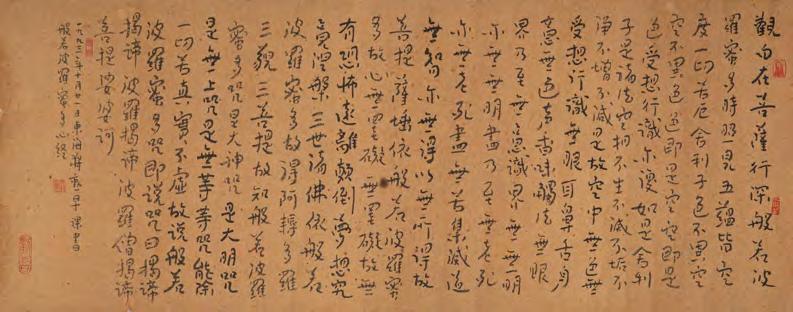 觀自在菩薩行深般若波
羅蜜多時照見五蘊皆空
度一切苦厄舍利子色不異空
空不異色色即是空空即是
色受想行識亦復如是舍利
子是諸法空相不生不滅不垢不
淨不增不減是故空中無色無
受想行識無眼耳鼻舌身
意無色聲香味觸法無眼
界乃至無意識界無無明
亦無無明盡乃至無老死
亦無老死盡無苦集滅道
無智亦無得以無所得故
菩提薩埵依般若波羅蜜
多故心無罣礙無罣礙故無
有恐怖遠離顛倒夢想究
竟涅槃三世諸佛依般若
波羅蜜多故得阿耨多羅
三藐三菩提故知般若波羅
蜜多咒是大神咒是大明咒
是無上咒是無等等咒能除
一切苦真實不虛故說般若
波羅蜜多咒即說咒曰揭諦
揭諦波羅揭諦波羅僧揭諦
菩提娑婆訶
一九九三年十月廿一日東海蔣勳早課書
般若波羅蜜多心經